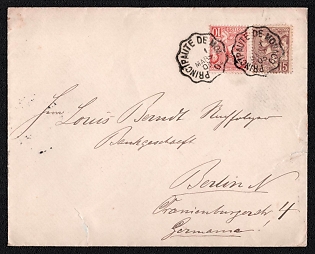 PRINCIPAUTE DE MONACO
PRINCIPAUTE DE MONACO
10
15
Herrn Louis Berndt Nachfolger
Bankgeschäft
Berlin N
Oranienburgerstr 4
Germania!